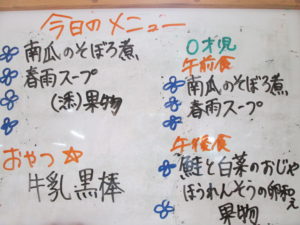 今日のメニュー
南瓜のそぼろ煮
春雨スープ
(香)果物
おやつ
牛乳 黒棒
0才児
午前食
南瓜のそぼろ煮
春雨スープ
午後食
鮭と白菜のおじや
ほうれんそうの卵和え
果物